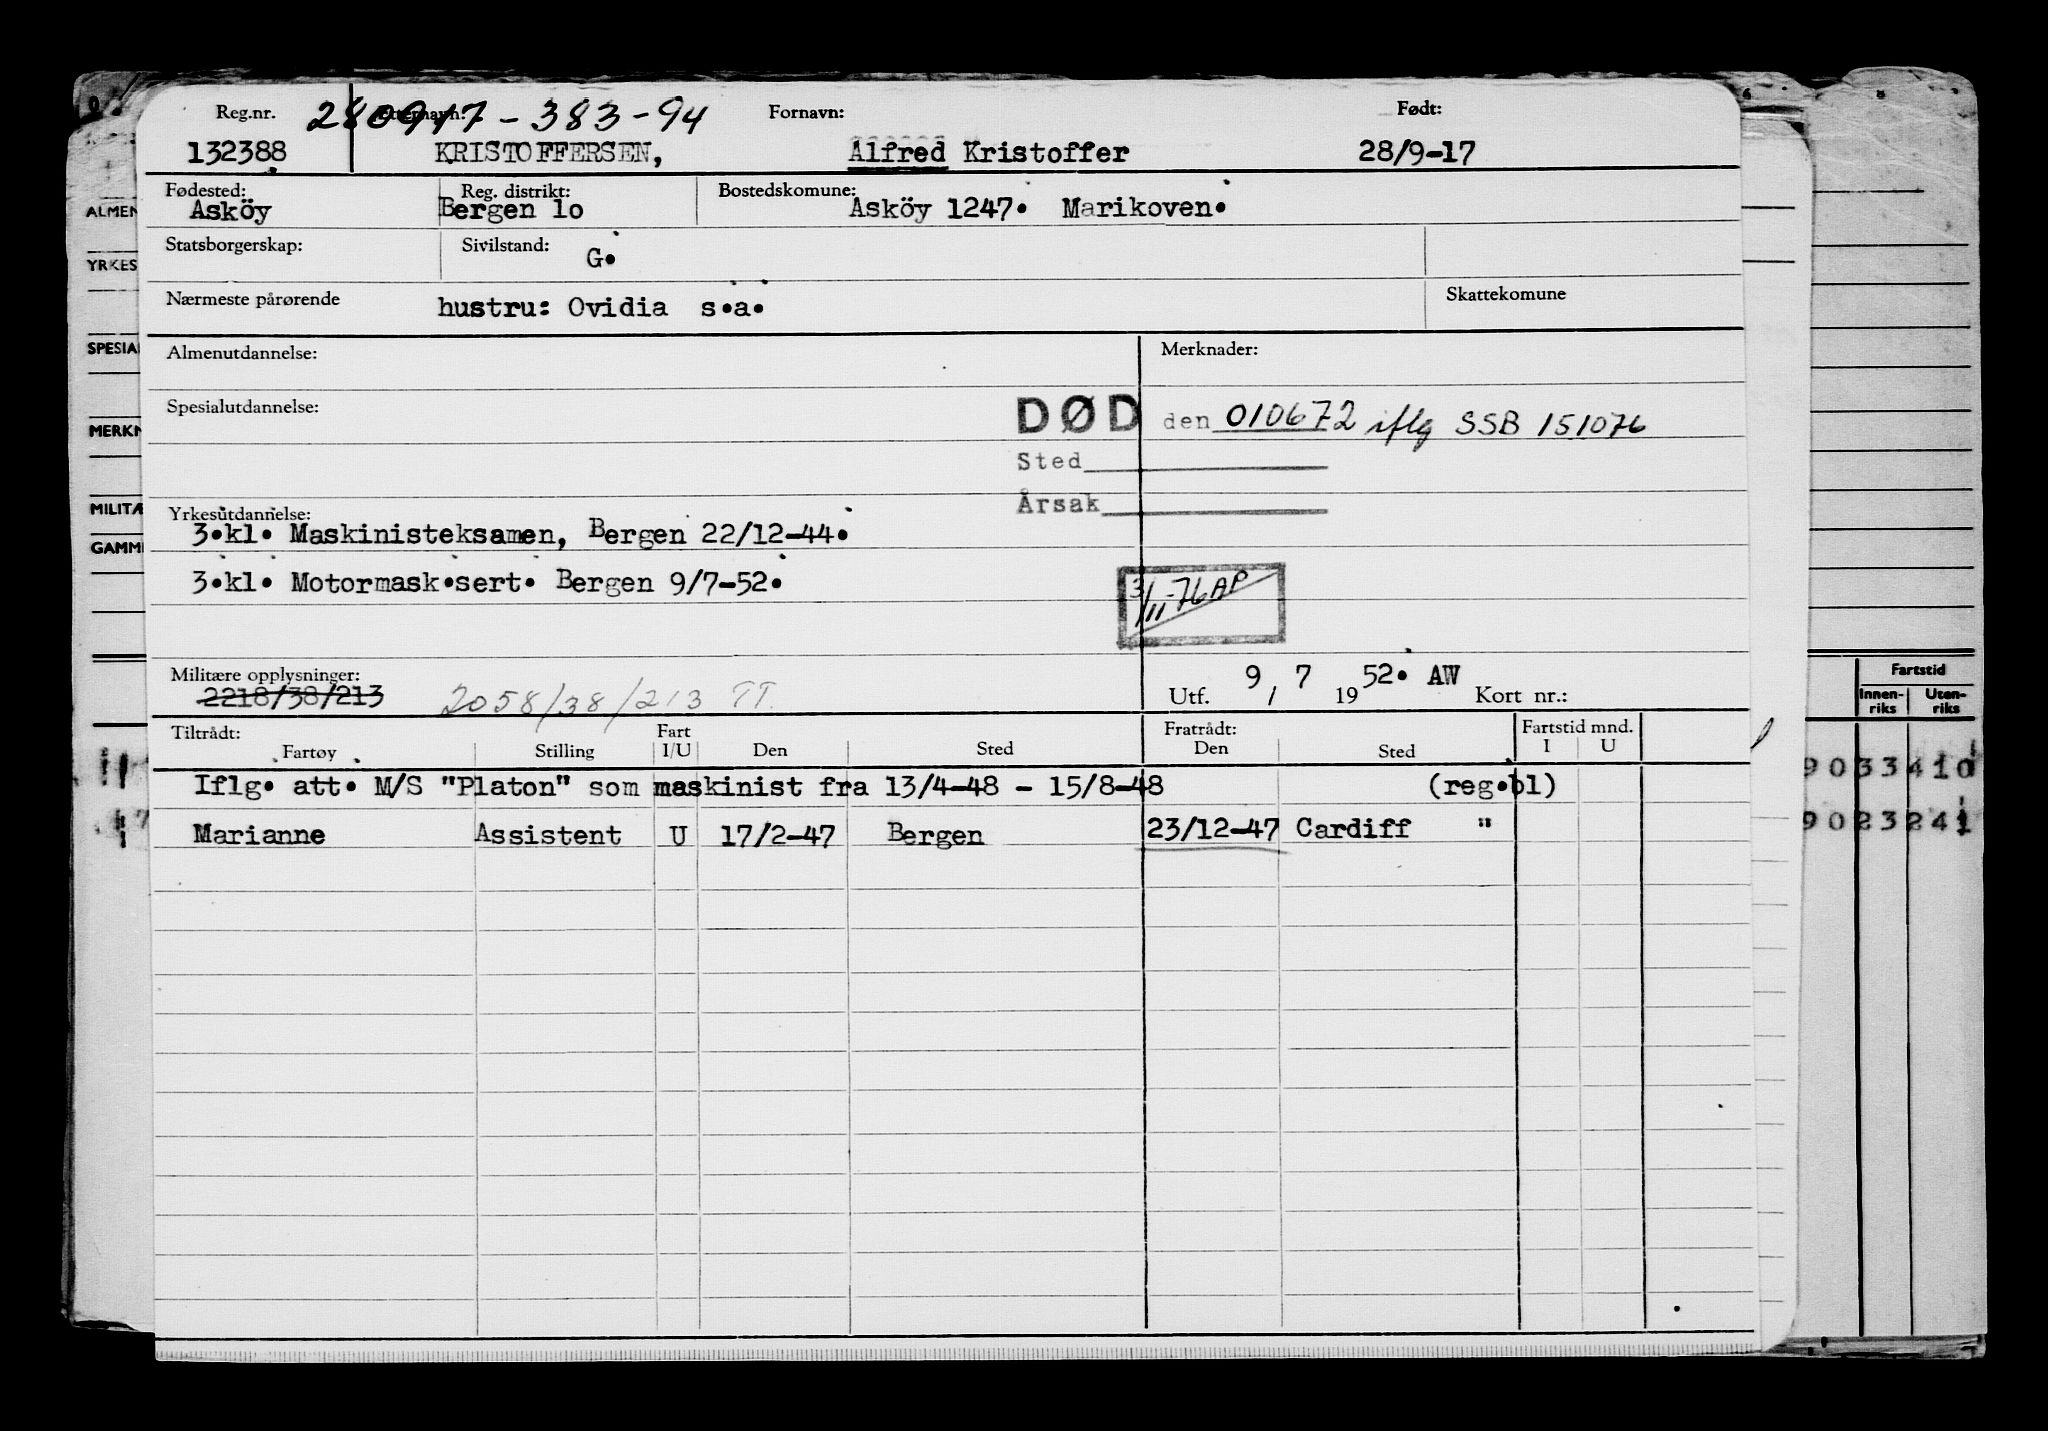 Reg.nr. 280917-383-94 Etternavn: Fornavn: Født:
132388 KRISTOFFERSEN, Alfred Kristoffer 28/9-17
Fødested: Reg. distrikt: Bostedskomune:
Asköy Bergen lo Asköy 1247. Marikoven.
Statsborgerskap: Sivilstand: G.
Nærmeste pårørende hustru: Ovidia s.a. Skattekomune
Almenutdannelse: Merknader:
Spesialutdannelse: DØD den 010672 iflg SSB 151076
Sted
Årsak
Yrkesutdannelse:
3.kl. Maskinisteksamen, Bergen 22/12-44.
3.kl. Motormask.sert. Bergen 9/7-52.
3/11-76 AP
Militære opplysninger:
2218/38/213 2058/38/213 TT. Utf. 9 / 7 1952. AW Kort nr.:
Tiltrådt: Fart Fratrådt: Fartstid mnd.
Fartøy Stilling I/U Den Sted Den Sted I U
Iflg. att. M/S "Platon" som maskinist fra 13/4-48 - 15/8-48 (reg.bl)
Marianne Assistent U 17/2-47 Bergen 23/12-47 Cardiff "
ALMEN
YRKES
SPESIA
MERKN
MILITÆ
GAMM
Fartstid
Innen-riks Uten-riks
9033410
9023241